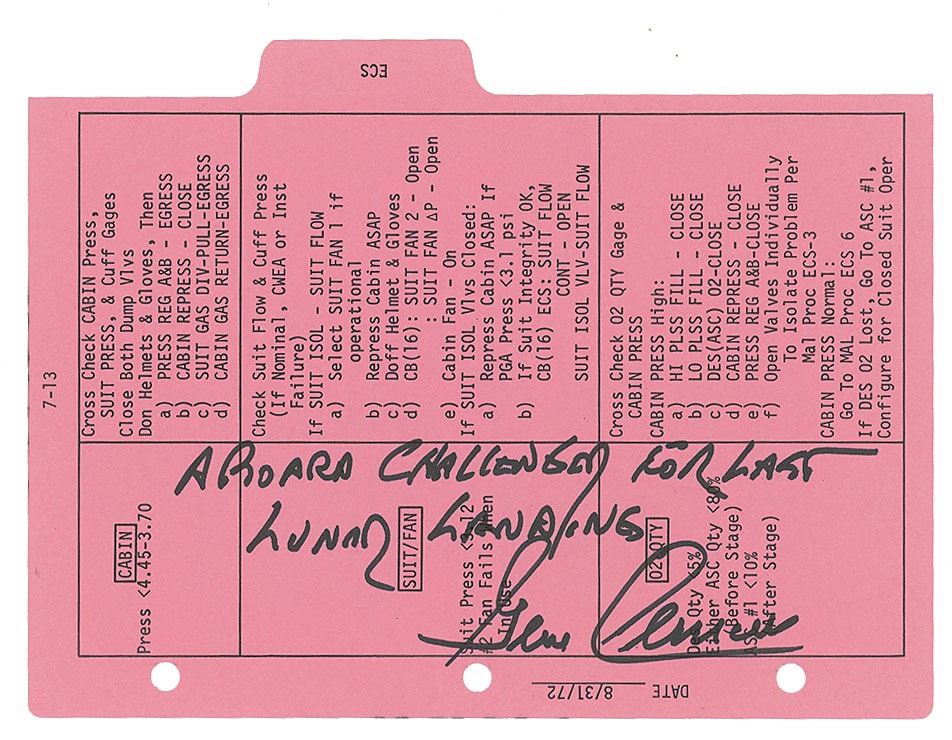 ECS
7-13
CABIN
Press <4.45-3.70
Cross Check CABIN Press,
SUIT PRESS, & Cuff Gages
Close Both Dump Vlvs
Don Helmets & Gloves, Then
a) PRESS REG A&B - EGRESS
b) CABIN REPRESS - CLOSE
c) SUIT GAS DIV-PULL-EGRESS
d) CABIN GAS RETURN-EGRESS
SUIT/FAN
Suit Press
#2 Fan Fails When
In Use
Check Suit Flow & Cuff Press
(If Nominal, CWEA or Inst
Failure)
If SUIT ISOL - SUIT FLOW
a) Select SUIT FAN 1 if
operational
b) Repress Cabin ASAP
c) Doff Helmet & Gloves
d) CB(16): SUIT FAN 2 - Open
: SUIT FAN ΔP - Open
e) Cabin Fan - On
If SUIT ISOL Vlvs Closed:
a) Repress Cabin ASAP If
PGA Press <3.1 psi
b) If Suit Integrity OK,
CB(16) ECS: SUIT FLOW
CONT - OPEN
SUIT ISOL VLV-SUIT FLOW
O2 QTY
Des Qty <5%
Either ASC Qty <80%
(Before Stage)
ASC #1 <10%
(After Stage)
Cross Check O2 QTY Gage &
CABIN PRESS
CABIN PRESS High:
a) HI PLSS FILL - CLOSE
b) LO PLSS FILL - CLOSE
c) DES(ASC) O2-CLOSE
d) CABIN REPRESS - CLOSE
e) PRESS REG A&B-CLOSE
f) Open Valves Individually
To Isolate Problem Per
Mal Proc ECS-3
CABIN PRESS Normal:
Go To MAL Proc ECS 6
If DES O2 Lost, Go To ASC #1,
Configure for Closed Suit Oper
ABOARD CHALLENGER FOR LAST
LUNAR LANDING
Gene Cernan
DATE 8/31/72